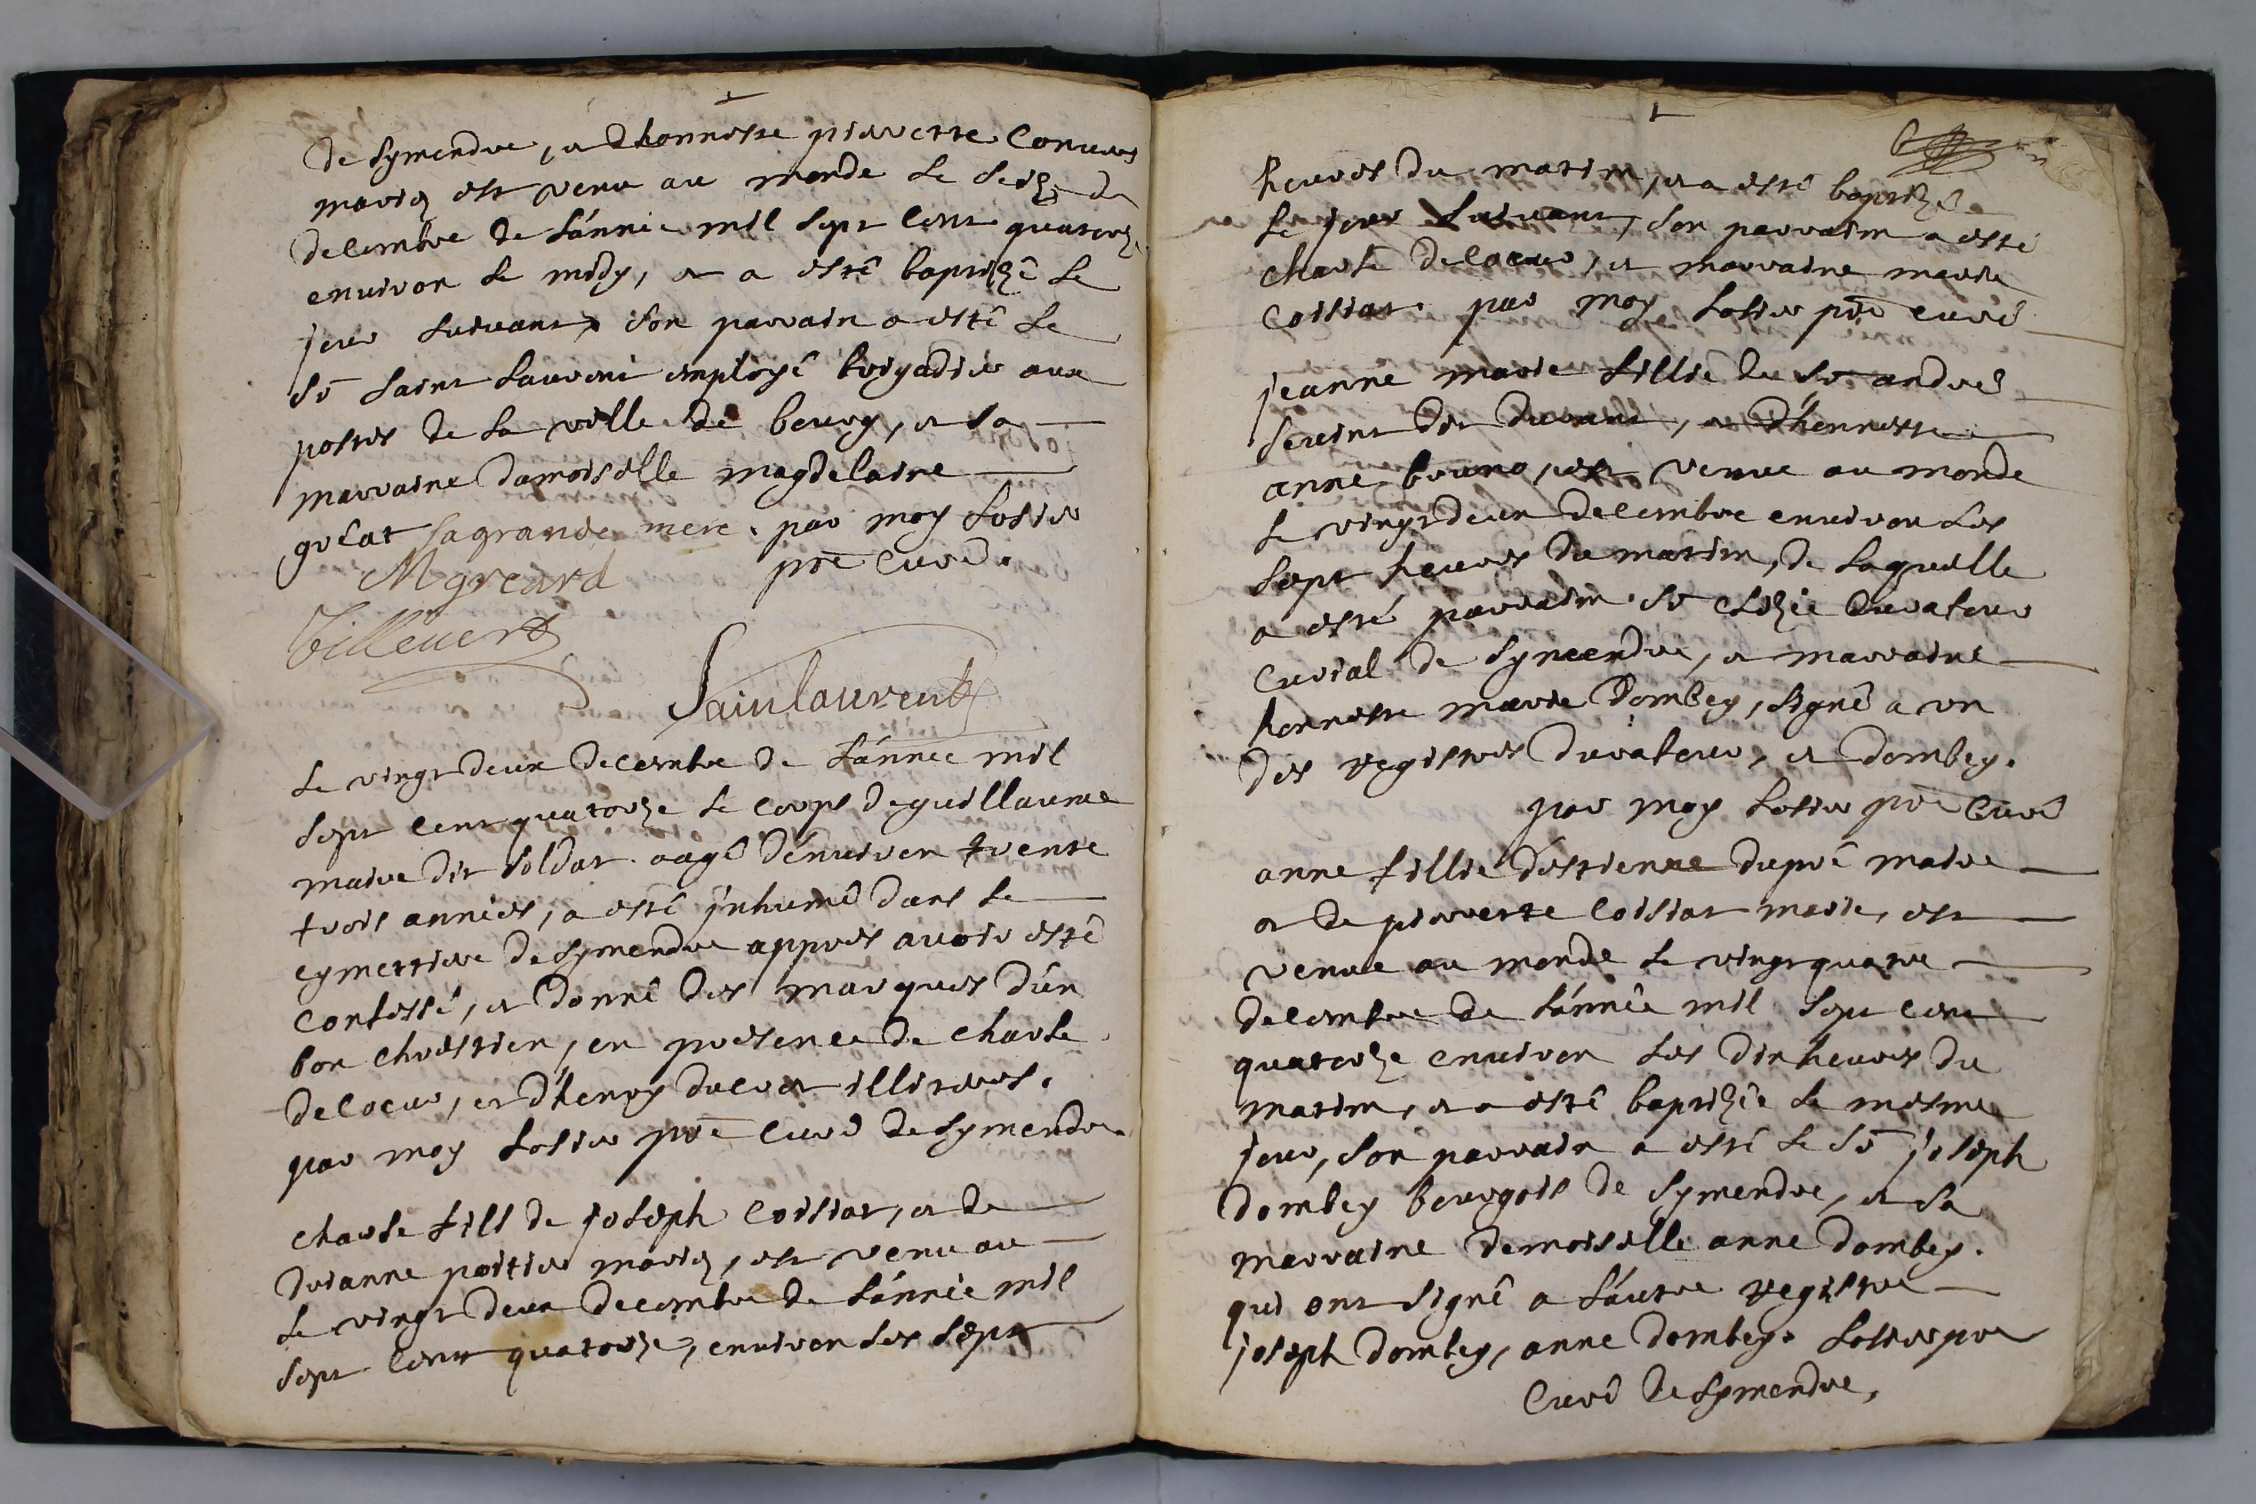 de symendre, et dhonneste pierrette convers
mariez est venu au monde le seize de
decembre de lánnée mil sept cent quatorze
enuiron le midy, et a esté baptizé le
jour suiuant, son parrain a esté le
sr saint laurent employé brigadier aux
postes de la ville de bourg, et sa
marraine damoiselle magdelaine
grcat sa grande mere. par moy
pre curé.
M greard
Villeuert
Sainlaurent
Le vingt deux decembre de lánnée mil
sept cent quatorze le corps de guillaume
maire dit soldat aagé dénuiron trente
trois années, a esté jnhumé dans le
cymettiere de symendre appres auoir esté
confessé, et donné des marques dún
bon chrestien, en presence de charle
delocur, et d'henry ducret illiteres.
par moy pre curé de symendre.
charle fils de joseph coissiat, et de
drianne poitier mariez, est venu au
le vingt deux decembre de lánnée mil
sept cent quatorze, enuiron les sept
heures du matin, et a esté baptizé
le jour suiuant, son parrain a esté
charle delocur, et marraine marie
coissiat. par moy pre curé
jeanne marie fillie du sr andré
seruint dit durant, et d'honneste
anne bruno, est venue au monde
le vingtdeux decembre enuiron les
sept heures du matin, de laquelle
a esté parrain sr curateur
curial de symendre, et marraine
honneste marie Dombey, signé a un
des registres curateur, et dombey.
par moy pre curé
anne fillie déstienne dupré maire
et de pierrette coissiat marie, est
venue au monde le vingtquatre
decembre de lánnée mil sept cent
quatorze enuiron les dix heures du
matin, et a esté baptizée le mesme
jour, son parrain a esté le sr joseph
dombey bourgois de symendre, et sa
marraine demoiselle anne dombey.
qui ont signé a láutre registre
joseph dombey, anne dombey. pre
curé de symendre,